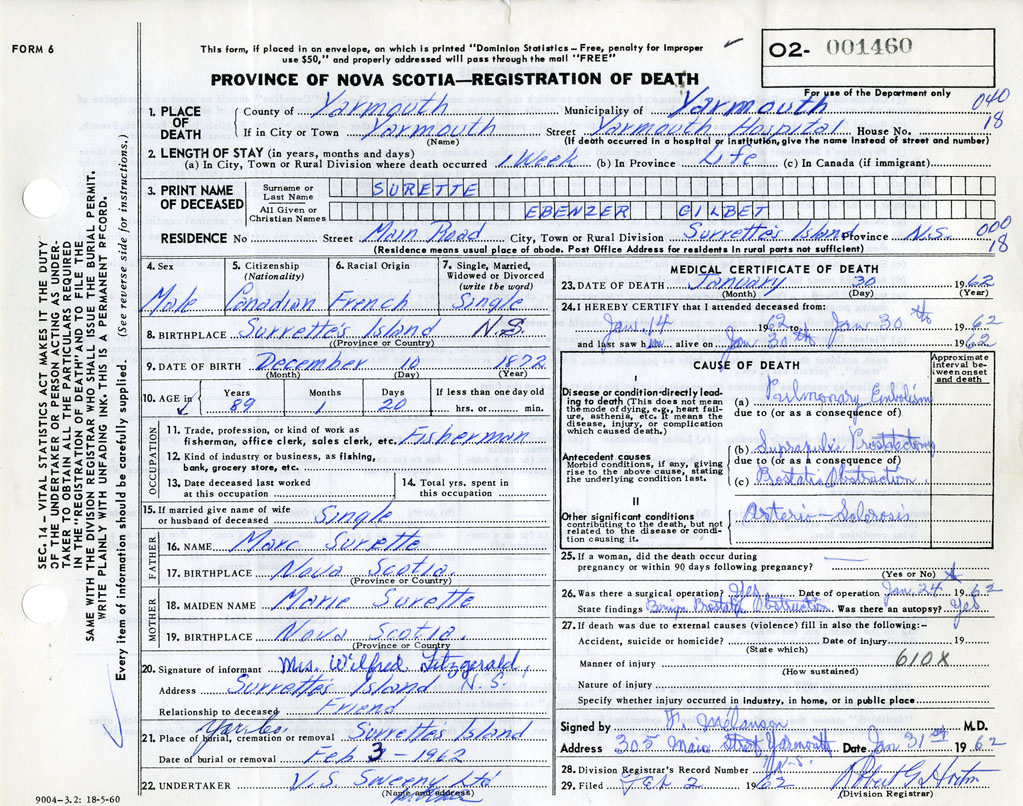 FORM 6
This form, if placed in an envelope, on which is printed "Dominion Statistics – Free, penalty for improper
use $50," and properly addressed will pass through the mail "FREE"
O2- 001460
For use of the Department only
PROVINCE OF NOVA SCOTIA—REGISTRATION OF DEATH
040
18
1. PLACE OF DEATH
County of Yarmouth Municipality of Yarmouth
If in City or Town Yarmouth Street Yarmouth Hospital House No.
(Name) (If death occurred in a hospital or institution, give the name instead of street and number)
2. LENGTH OF STAY (in years, months and days)
(a) In City, Town or Rural Division where death occurred 1 Week (b) In Province Life (c) In Canada (if immigrant)
3. PRINT NAME OF DECEASED
Surname or Last Name SURETTE
All Given or Christian Names EBENZER GILBET
000
18
RESIDENCE No Street Main Road City, Town or Rural Division Surrette's Island Province N.S.
(Residence means usual place of abode. Post Office Address for residents in rural parts not sufficient)
4. Sex Male
5. Citizenship (Nationality) Canadian
6. Racial Origin French
7. Single, Married, Widowed or Divorced (write the word) Single
8. BIRTHPLACE Surrette's Island N.S.
(Province or Country)
9. DATE OF BIRTH December 10 1872
(Month) (Day) (Year)
10. AGE in Years 89 Months 1 Days 20 If less than one day old hrs. or min.
OCCUPATION
11. Trade, profession, or kind of work as
fisherman, office clerk, sales clerk, etc. Fisherman
12. Kind of industry or business, as fishing,
bank, grocery store, etc.
13. Date deceased last worked at this occupation
14. Total yrs. spent in this occupation
15. If married give name of wife or husband of deceased Single
FATHER
16. NAME Marc Surette
17. BIRTHPLACE Nova Scotia.
(Province or Country)
MOTHER
18. MAIDEN NAME Marie Surette
19. BIRTHPLACE Nova Scotia.
(Province or Country)
20. Signature of informant Mrs. Wilfred Fitzgerald,
Address Surrette's Island N.S.
Relationship to deceased Friend
21. Place of burial, cremation or removal Surrette's Island
Date of burial or removal Feb 3 - 1962
22. UNDERTAKER V.S. Sweeny Ltd
(Name and address)
9004-3.2: 18-5-60
MEDICAL CERTIFICATE OF DEATH
23. DATE OF DEATH January 30 1962
(Month) (Day) (Year)
24. I HEREBY CERTIFY that I attended deceased from:
Jan. 14 1962 to Jan 30th 1962
and last saw him alive on Jan 30th 1962
CAUSE OF DEATH
Approximate interval between onset and death
I
Disease or condition directly leading to death (This does not mean the mode of dying, e.g., heart failure, asthenia, etc. It means the disease, injury, or complication which caused death.)
(a) Pulmonary Embolism
due to (or as a consequence of)
Antecedent causes
Morbid conditions, if any, giving rise to the above cause, stating the underlying condition last.
(b) Suprapubic Prostatectomy
due to (or as a consequence of)
(c) Prostatic Obstruction
II
Other significant conditions
contributing to the death, but not related to the disease or condition causing it.
Arterio-Sclerosis
25. If a woman, did the death occur during
pregnancy or within 90 days following pregnancy?
(Yes or No)
26. Was there a surgical operation? Yes Date of operation Jan 24 1962
State findings Benign Prostatic Obstruction Was there an autopsy? Yes
27. If death was due to external causes (violence) fill in also the following:-
Accident, suicide or homicide? Date of injury 19
(State which)
610X
Manner of injury
(How sustained)
Nature of injury
Specify whether injury occurred in industry, in home, or in public place
Signed by F. Melanson M.D.
Address 305 Main Street Yarmouth Date Jan 31st 1962
N.S.
28. Division Registrar's Record Number
29. Filed Feb 2 1962 Robert G. Horton
(Division Registrar)
SEC. 14– VITAL STATISTICS ACT MAKES IT THE DUTY
OF THE UNDERTAKER OR PERSON ACTING AS UNDER-
TAKER TO OBTAIN ALL THE PARTICULARS REQUIRED
IN THE "REGISTRATION OF DEATH" AND TO FILE THE
SAME WITH THE DIVISION REGISTRAR WHO SHALL ISSUE THE BURIAL PERMIT.
WRITE PLAINLY WITH UNFADING INK. THIS IS A PERMANENT RECORD.
Every item of information should be carefully supplied. (See reverse side for instructions.)